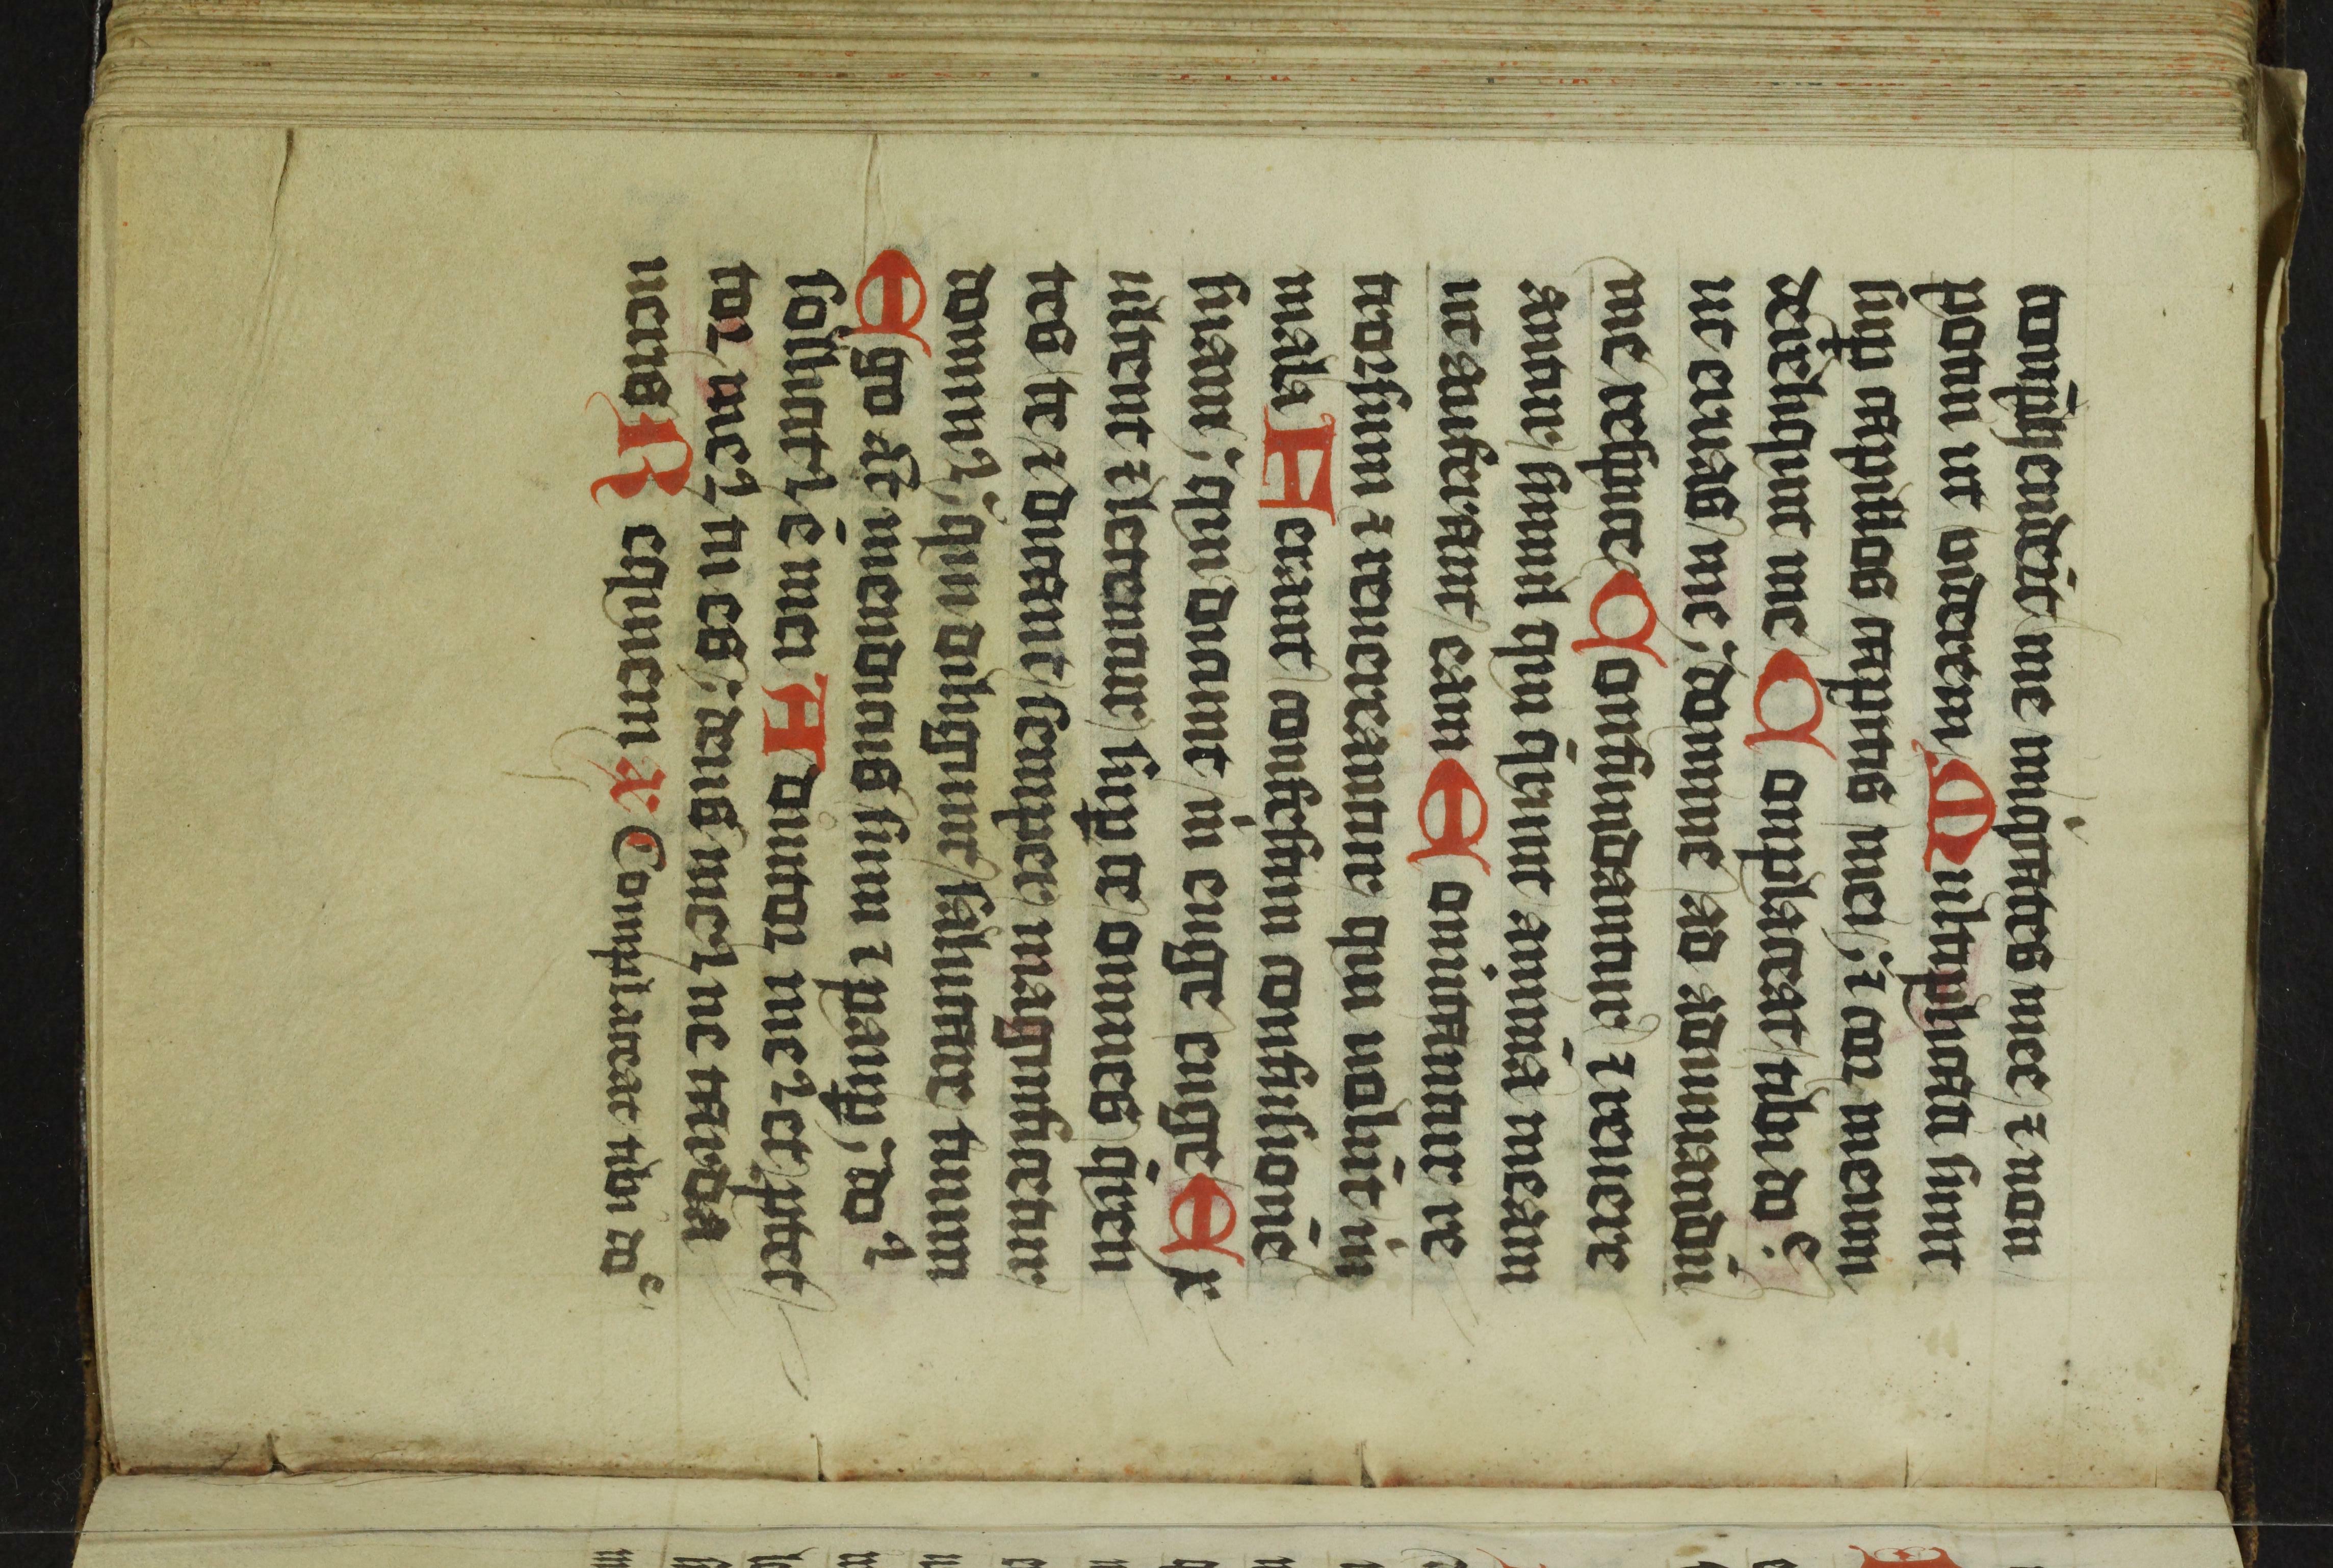 conp̄hendēt me iniq̄tates mee ⁊ non
potui ut viderem Multiplicati sunt
suꝑ capillos capitis mei ; ⁊ cor meum
dereliquit me Complaceat tibi dñe
ut eruas me ; domine ad adiuuandū
me respice Confundantur ⁊ reuere
antur simul qui q̄runt animā meam
ut auferant eam Conuertantur re
trorsum ⁊ reuereantur qui uolūt m
mala Ferant confestim confusionē
suam ; qui dicunt m euge euge Ex
ultent ⁊ letentur suꝑ te omnes q̄ren
tes te ⁊ dicant semper magnificetur
dominus ; qui diligunt salutare tuum
Ego aūt mendicus sum ⁊ pauꝑ ; do
sollicitus ē mei Adiutor meus et ꝓtec
tor meus tu es ; deus meus ne tarda
ueris Requiem a͞ Complaceat tibi dñe